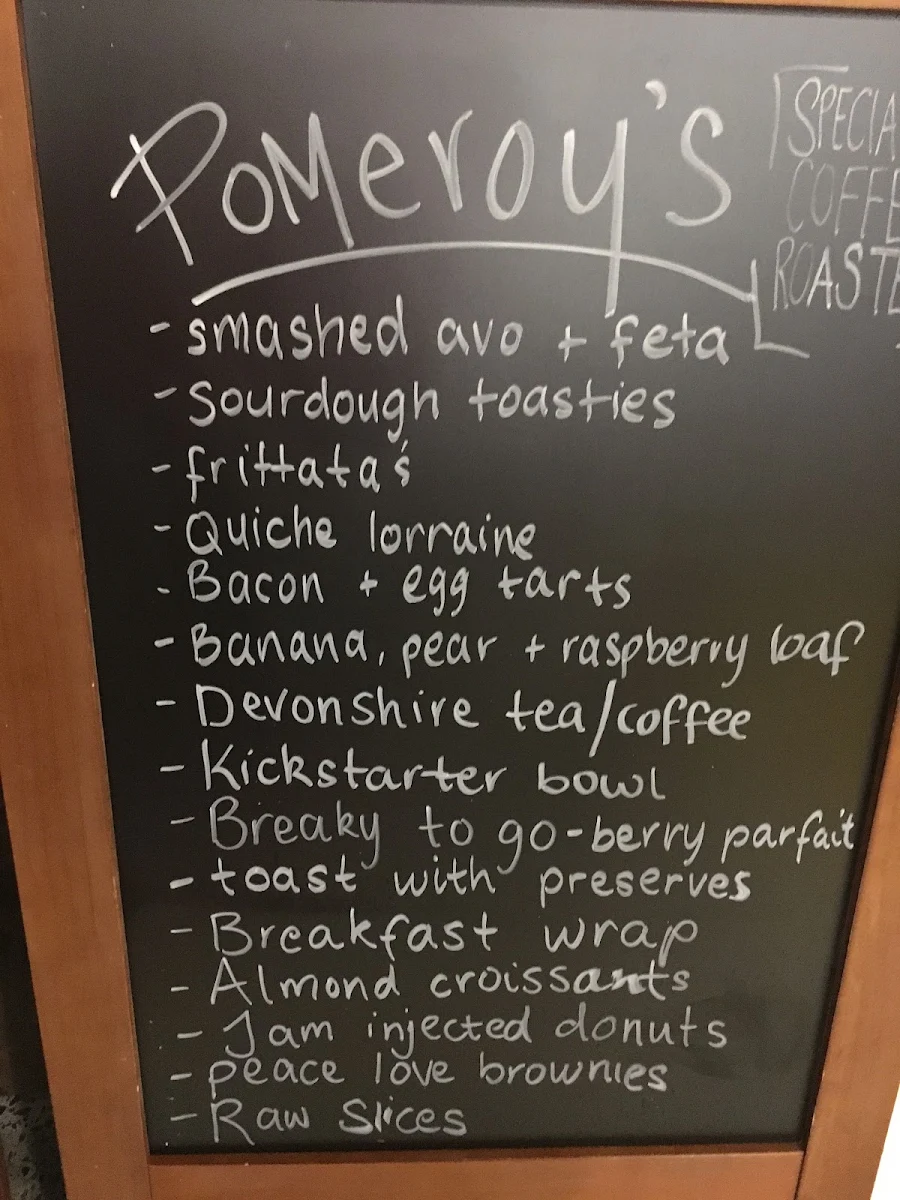 Pomeroy's
SPECIA
COFFE
ROASTE
- smashed avo + feta
- Sourdough toasties
- frittata's
- Quiche lorraine
- Bacon + egg tarts
- Banana, pear + raspberry loaf
- Devonshire tea/coffee
- Kickstarter bowl
- Breaky to go-berry parfait
- toast with preserves
- Breakfast wrap
- Almond croissants
- Jam injected donuts
- peace love brownies
- Raw Slices